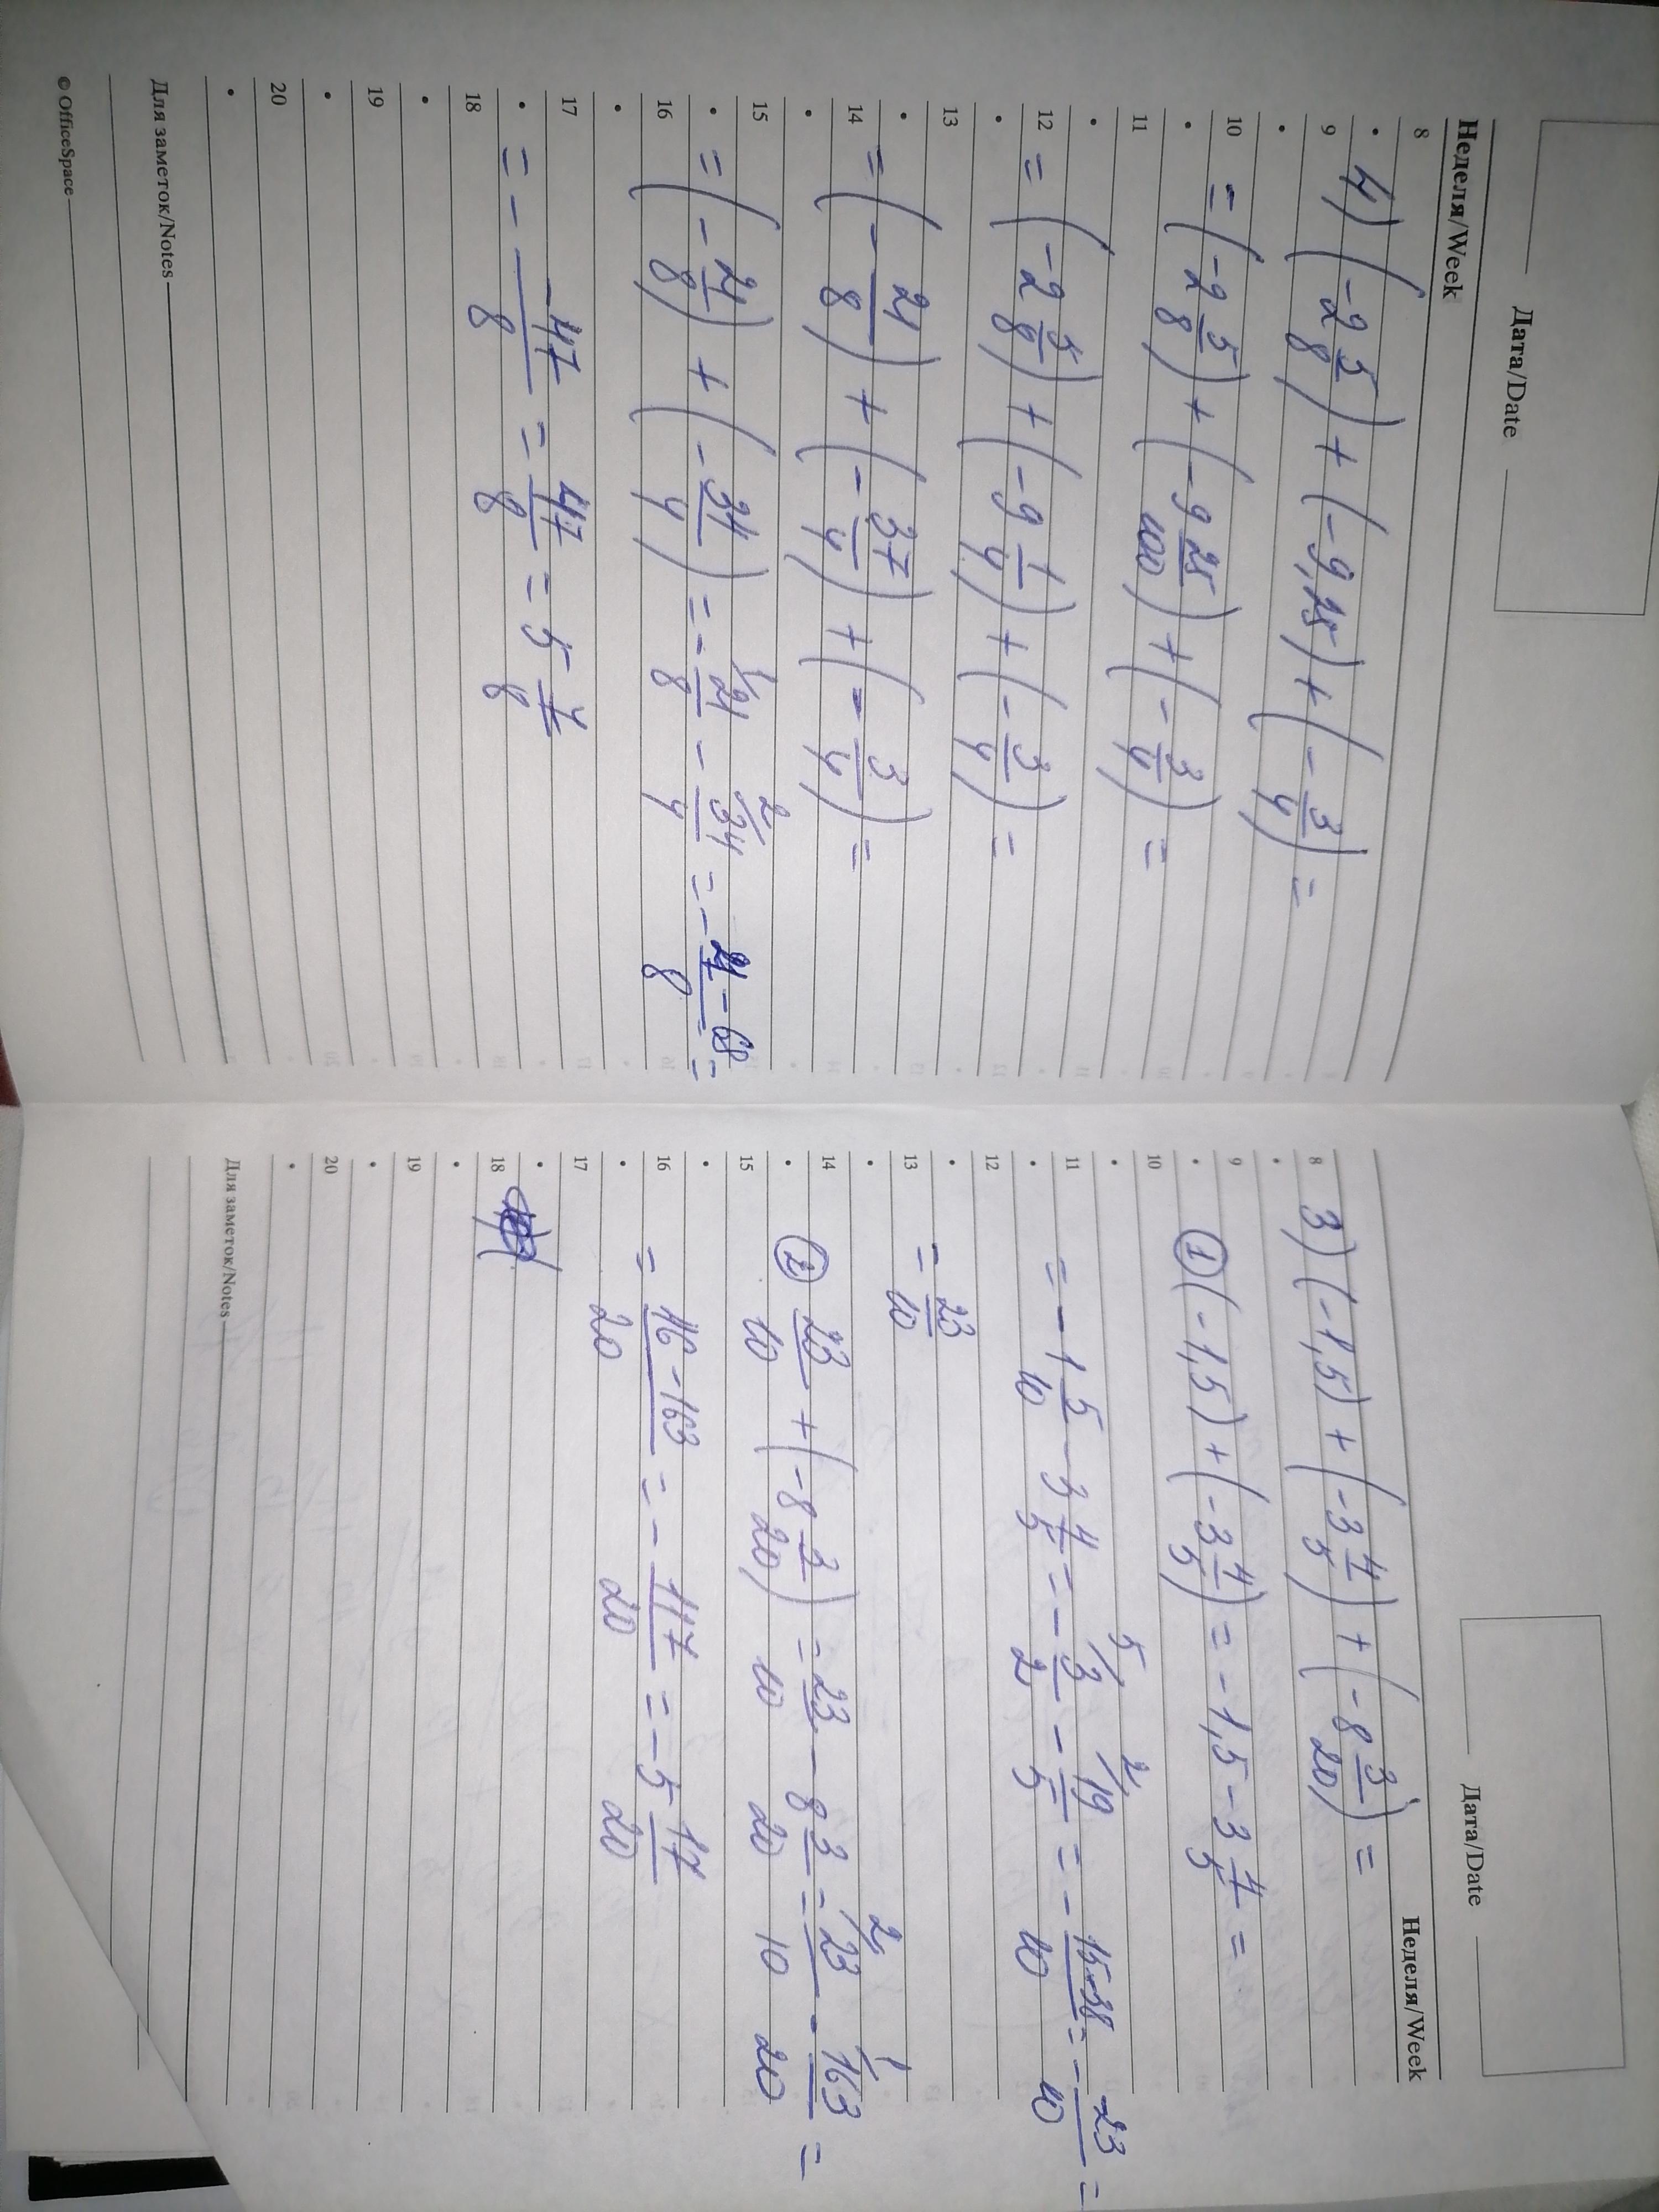 Дата/Date
Неделя/Week
8
4) (-2 5/8) + (-9,25) + (-3/4) =
9
10
= (-2 5/8) + (-9 25/100) + (-3/4) =
11
12
= (-2 5/8) + (-9 1/4) + (-3/4) =
13
14
= (-21/8) + (-37/4) + (-3/4) =
15
= (-21/8) + (-34/4) = -21/8 - 34/4 = - 21-68/8 =
16
17
= - -47/8 = 47/8 = 5 7/8
18
19
20
Для заметок/Notes
© OfficeSpace
Дата/Date
Неделя/Week
8
3) (-1,5) + (-3 4/5) + (-8 3/20) =
9
① (-1,5) + (-3 4/5) = -1,5 - 3 4/5 =
10
11
= -1 5/10 - 3 4/5 = - 3/2 - 19/5 = - 15-38/10 = - -23/10 =
12
13
= 23/10
14
② 23/10 + (-8 3/20) = 23/10 - 8 3/20 = 23/10 - 163/20 =
15
16
= 46-163/20 = - 117/20 = -5 17/20
17
18
19
20
Для заметок/Notes